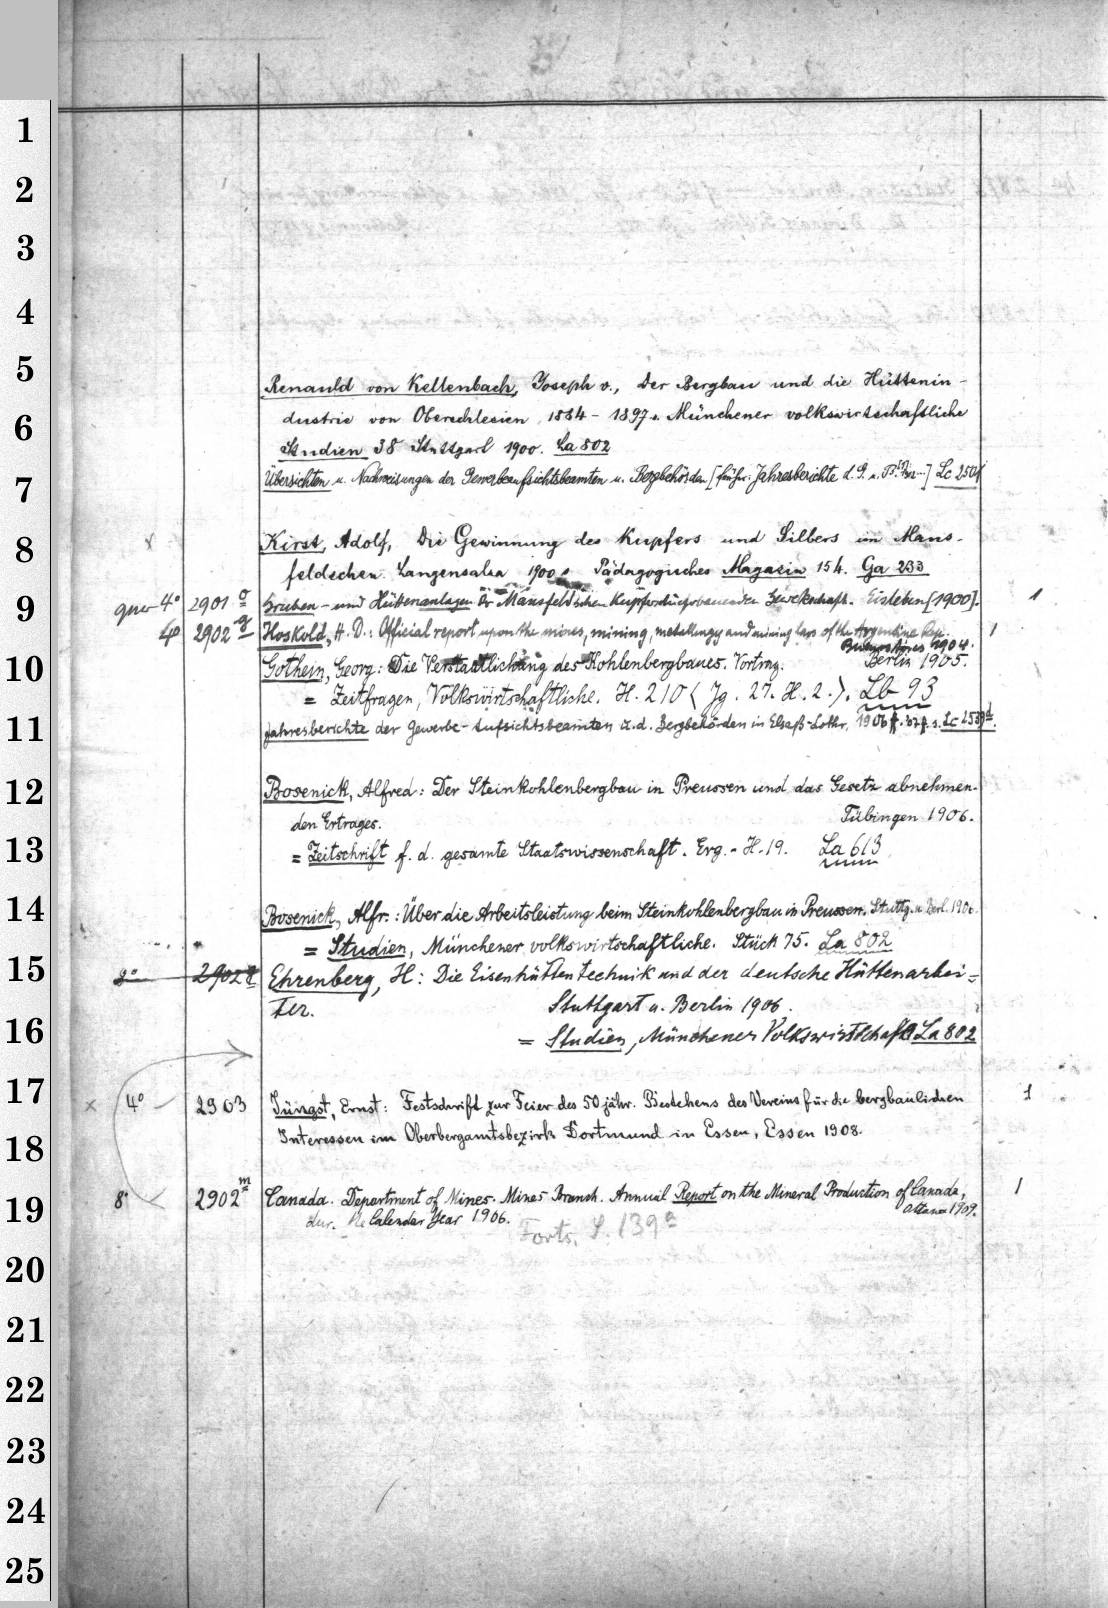 1
2
3
4
5
Renauld von Kellenbach, Joseph v., Der Bergbau und die Hüttenin-
6
dustrie von Oberschlesien 1884 - 1897. Münchener volkswirtschaftliche
Studien 38 Stuttgart 1900. La 802
7
Übersichten u. Nachweisungen der Gewerbeaufsichtsbeamten u. Bergbehörden [früher: Jahresberichte d. Lc 250
8
Kirst, Adolf, Die Gewinnung des Kupfers und Silbers im Mans-
feldschen. Langensalza 1900. Pädagogisches Magazin 154. Ga 233
9
quer 4° 2901 Gruben- und Hüttenanlagen der Mansfeldschen Kupferschieferbauenden Gewerkschaft. Eisleben [1900]. 1
4° 2902 Hoskold, H. D.: Official report upon the mines, mining, metallurgy and mining laws of the Argentine Rep. 1
Buenos Aires 1904.
10
Gothein, Georg: Die Verstaatlichung des Kohlenbergbaues. Vortrag. Berlin 1905.
= Zeitfragen, Volkswirtschaftliche. H. 210 (Jg. 27. H. 2.). Lb 93
11
Jahresberichte der Gewerbe-Aufsichtsbeamten u. d. Bergbehörden in Elsaß-Lothr. 1906 s. Lc 2539d.
12
Bosenick, Alfred: Der Steinkohlenbergbau in Preussen und das Gesetz abnehmen-
den Ertrages. Tübingen 1906.
13
= Zeitschrift f. d. gesamte Staatswissenschaft. Erg.-H. 19. La 613
14
Bosenick, Alfr.: Über die Arbeitsleistung beim Steinkohlenbergbau in Preussen. Stuttg. u. Berl. 1906.
= Studien, Münchener volkswirtschaftliche. Stück 75. La 802
15
8° 2902 Ehrenberg, H: Die Eisenhüttentechnik und der deutsche Hüttenarbei=
ter. Stuttgart u. Berlin 1906.
16
= Studien, Münchener Volkswirtschaftl La 802
17
x 4° 2903 Jüngst, Ernst: Festschrift zur Feier des 50 jähr. Bestehens des Vereins für die bergbaulichen 1
18
Interessen im Oberbergamtsbezirk Dortmund in Essen, Essen 1908.
19
8° 2902m Canada. Department of Mines. Mines Branch. Annual Report on the Mineral Production of Canada, 1
dur. the Calendar Year 1906. Ottawa 1909.
Forts. S. 139a
20
21
22
23
24
25